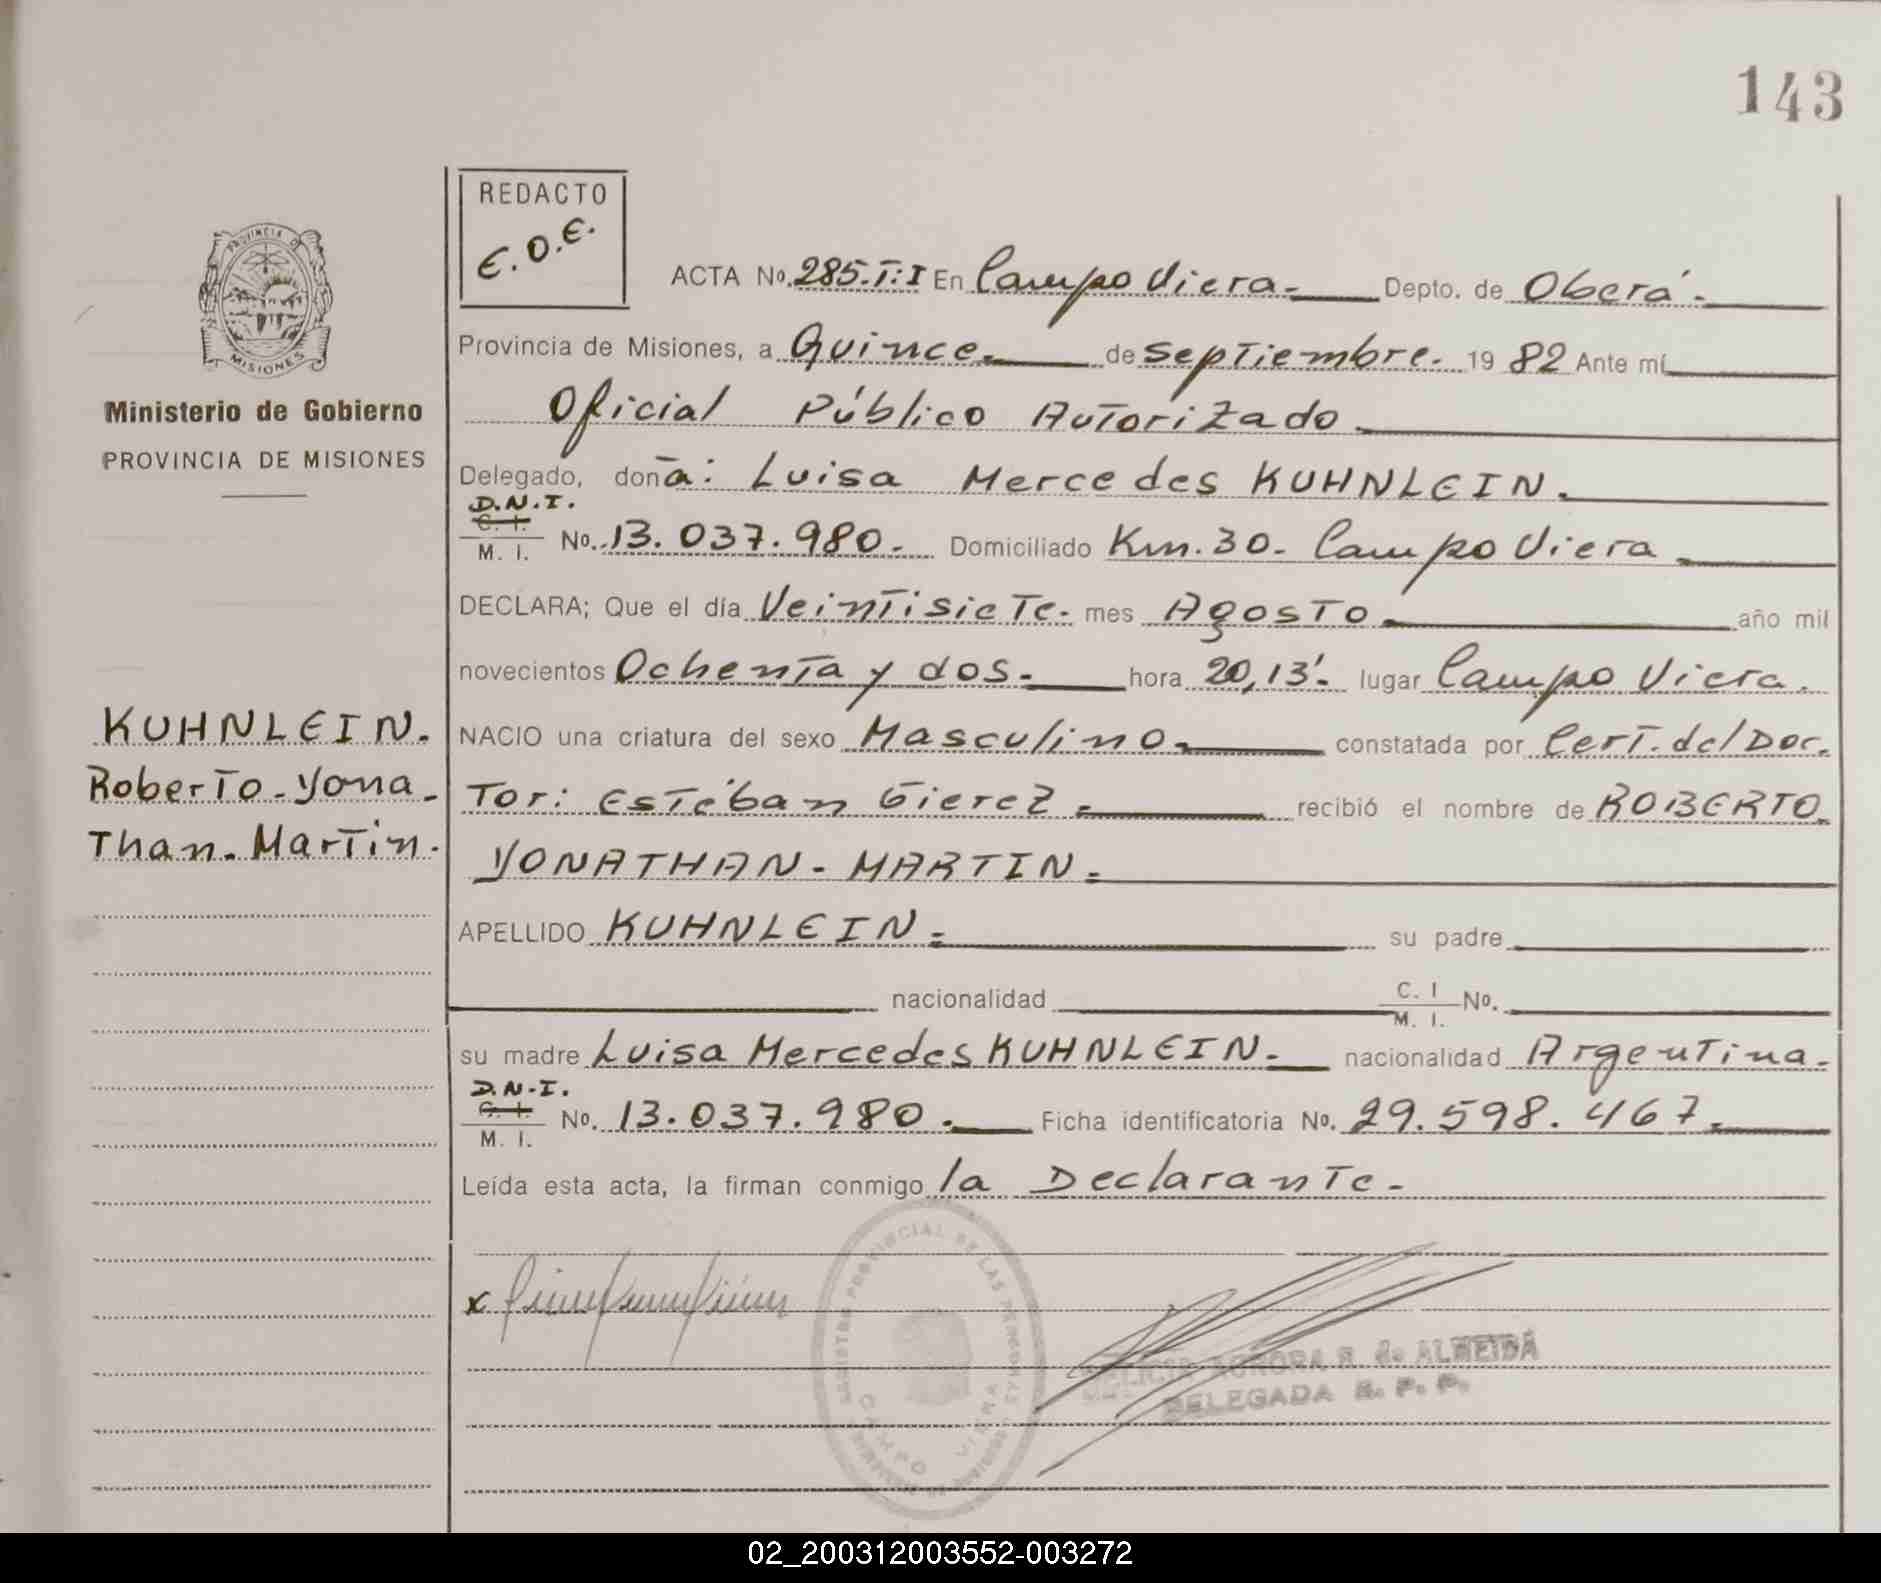 143
REDACTO
E.O.E.
PROVINCIA D
MISIONES
Ministerio de Gobierno
PROVINCIA DE MISIONES
ACTA No. 285.T:I En Campo Viera.- Depto. de Oberá.-
Provincia de Misiones, a Quince.- de septiembre. 19 82 Ante mí
Oficial Público Autorizado.
Delegado, doña: Luisa Mercedes KUHNLEIN.
D.N.I.
C. I.
M. I. No. 13.037.980.- Domiciliado Km.30.- Campo Viera.
DECLARA; Que el día Veintisiete.- mes Agosto.- año mil
novecientos Ochenta y dos.- hora 20,13'.- lugar Campo Viera.
NACIO una criatura del sexo Masculino.- constatada por Cert. del Doc.
tor: Esteban Gierez.- recibió el nombre de ROBERTO
YONATHAN - MARTIN.-
APELLIDO KUHNLEIN.- su padre
nacionalidad C. I M. I. No.
su madre Luisa Mercedes KUHNLEIN.- nacionalidad Argentina.-
D.N.I.
C. I.
M. I. No. 13.037.980.- Ficha identificatoria No. 29.598.467.-
Leída esta acta, la firman conmigo la Declarante.-
KUHNLEIN.
Roberto-Yona-
than. Martin.
x
REGISTRO PROVINCIAL DE LAS PERSONAS
CAMPO VIERA
AURORA R. de ALMEIDA
DELEGADA R. P. P.
02_200312003552-003272